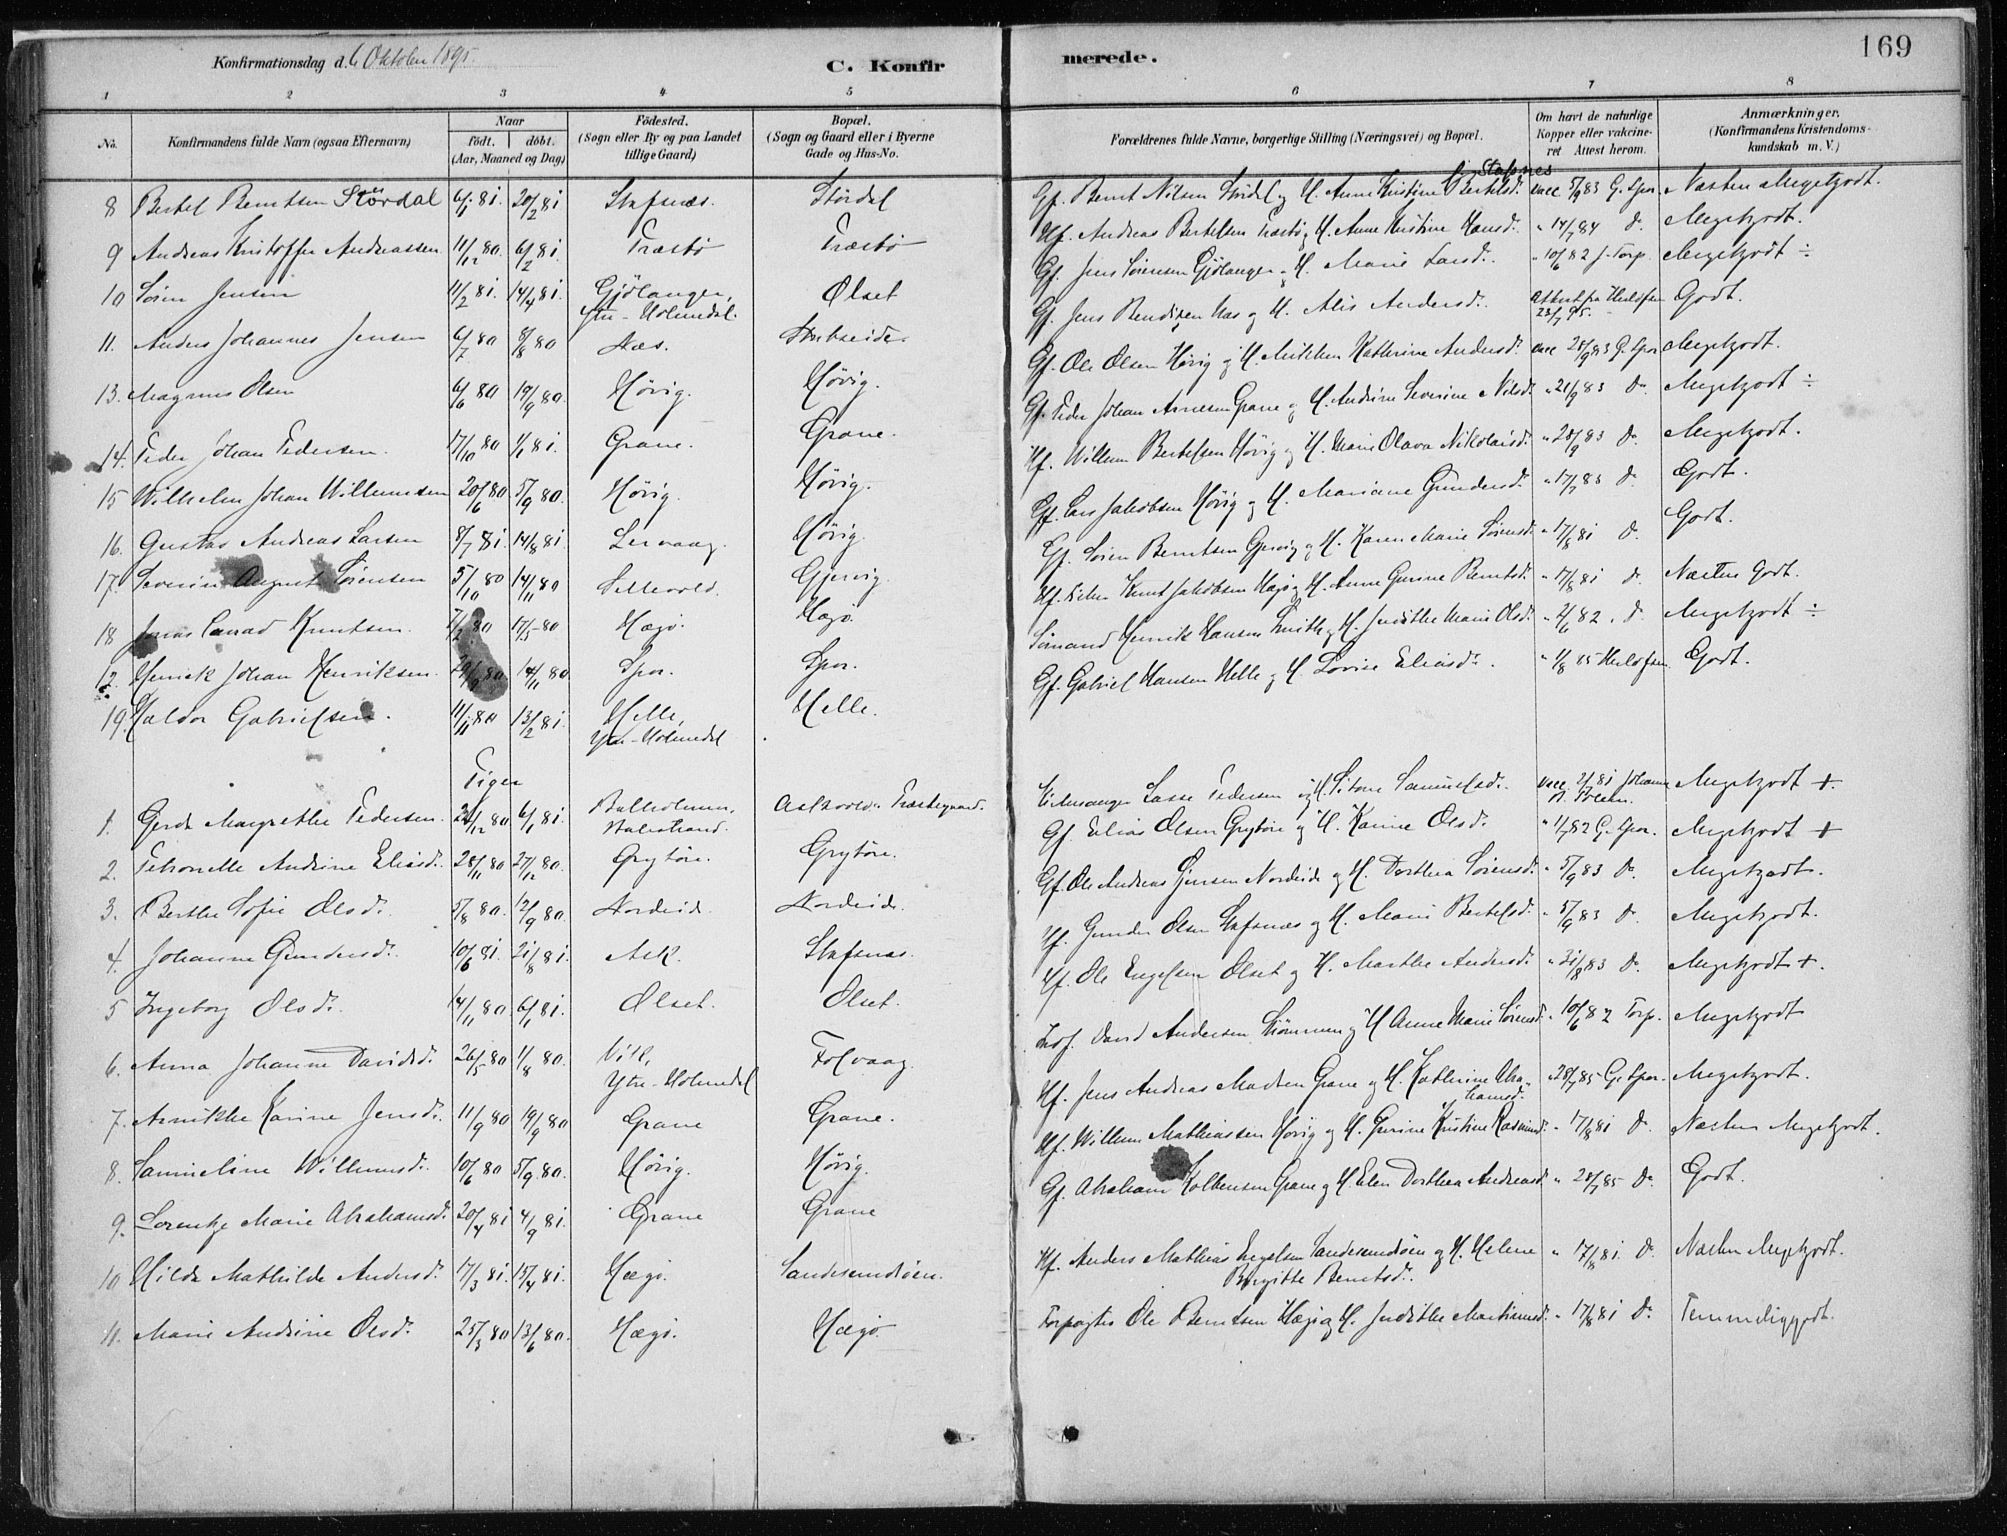 169
Konfirmationsdag d. 6 Oktober 1895.
C. Konfirmerede.
1 2 3 4 5 6 7 8
No.
Konfirmandens fulde Navn (ogsaa Efternavn)
Naar
födt. döbt.
(Aar, Maaned og Dag)
Födested.
(Sogn eller By og paa Landet
tillige Gaard)
Bopæl.
(Sogn og Gaard eller i Byerne
Gade og Hus-No.
Forældrenes fulde Navne, borgerlige Stilling (Næringsvei) og Bopæl.
Om havt de naturlige
Kopper eller vakcine-
ret Attest herom.
Anmærkninger.
(Konfirmandens Kristendoms-
kundskab m. V.)
Stafsnes
8 Bertel Berntsen Stördal 6/1 81 20/2 81 Stafsnæs. Stördal Gf. Bernt Nilsen Stördal og H. Anne Kristine Bertelsd. vacc 5/9 83 G. Spor. Næsten Megetgodt.
9 Andreas Kristoffer Andreassen 11/12 80. 6/2 81. Træsbö Træsbö Hf. Andreas Bertelsen Træsbö og H. Anne Kristine Hansd. " 14/7 84 Do. Megetgodt.
10 Sören Jensen 11/2 81. 14/4 81. Gjölanger, Ölset Gf. Jens Sörensen Gjölanger og H. Marie Larsd. " 10/6 82 J. Torp. Megetgodt ÷
Ytre-Holmedal.
11. Anders Johannes Jensen 6/7 80 8/8 80 Næs. Gf. Jens Bendixen Næs og H. Alis Andersd. Attest fra Herlofsen Godt.
23/7 95.
13. Magnus Olsen 6/6 80 19/9 80. Hörig. Hörig. Gf. Ole Olsen Hörig og H. Mikkeline Kathrine Andersd. vacc 28/9 83 G. Spor Megetgodt.
14. Peder Johan Pedersen. 17/10 80 1/1 81. Grane. Grane. Gf. Peder Johan Arnesen Grane og H. Andrine Severine Nilsd. " 21/9 83 Do. Megetgodt ÷
15 Wilhelm Johan Willumsen 20/6 80 5/9 80. Hörig. Hörig. Hf. Willum Bertelsen Hörig og H. Marie Olava Nikolaisd. " 28/9 83 Do. Megetgodt.
16. Gustav Andreas Larsen 8/7 81. 14/8 81. Lervaag. Hörig. Gf. Lars Jakobsen Hörig og H. Mariane Gundersd. " 17/7 83 Do. Godt.
17. Severin August Sörensen 5/10 80 14/11 80 Sellevold. Gjervig. Gf. Sören Berntsen Gjervig og H. Karen Marie Sörensd. " 17/8 81 Do. Godt.
18 Jonas Conrad Knutsen. 7/2 80 17/5 80 Hægö. Hægö. Hf. Knut Jakobsen Hægö og H. Anne Gurine Berntsd. " 17/8 81 Do. Næsten Godt.
12. Henrik Johan Henriksen. 80 14/11 80 Spor. Spor. Sömand Henrik Hansen Smith og H. Judithe Marie Olsd. " 2/6 82. Do. Megetgodt ÷
19. Haldor Gabrielsen. 11/11 80 13/2 81. Helle, Helle. Gf. Gabriel Hansen Helle og H. Lovise Eliasd. " 1/8 85 Herlofsen Godt.
Ytre-Holmedal
Piger
1. Gerda Margrethe Pedersen. 80 6/1 81. Balholmen, Askvold. Præstegaard. Kirkesanger Lasse Pedersen og H. Samuelsd. vacc. 2/ 81 Johanne Megetgodt +
Balestrand.
2. Petronelle Andrine Eliasd. 28/11 80 27/12 80. Grytöre. Grytöre. Gf. Elias Olsen Grytöre og H. Karine Olsd. " 1/7 82 G. Spor. Megetgodt +
3. Berthe Sofie Olsd. 5/8 80. 12/9 80. Nordeide. Nordeide. Gf. Ole Andreas Jensen Nordeide og H. Dorthea Sörensd. " 5/9 83 Do. Megetgodt.
4. Johanne Gundersd. 10/6 81. 21/8 81. Ask. Stafsnæs. Hf. Gunder Olsen Stafsnæs og H. Marie Bertelsd. " 5/9 83 Do. Megetgodt.
5 Ingeborg Olsd. 14/11 80. 6/1 81. Ölset. Ölset. Hf. Ole Engelsen Ölset og H. Marthe Andersd. " 31/8 83 Do. Megetgodt +.
6. Anna Johanne Davidsd. 26/5 80 1/8 80. Vik, Folvaag. David Andersen og H. Anne Marie Sörensd. " 10/6 82 Torp. Megetgodt
Ytre-Holmedal
7. Annikke Karine Jensd. 11/9 80 19/9 80 Grane Grane. Hf. Jens Andreas Madsen Grane og H. Kathrine Abra- " 28/7 85 G. Spor. Megetgodt.
hamsd.
8. Samueline Willumsd. 10/6 80 5/9 80. Hörig. Hörig. Hf. Willum Mathiassen Hörig og H. Gurine Kristine Rasmusd. " 17/8 81 Do. Næsten Megetgodt.
9. Lorentze Marie Abrahamsd. 20/4 81 4/9 81. Grane Grane Gf. Abraham Kolbensen Grane og H. Elen Dorthea Andreasd. " 28/7 85 Do. Godt.
10 Hilda Mathilde Andersd. 17/3 81. 15/4 81. Hægö. Sandesundöen. Hf. Anders Mathias Engelsen Sandesundöen og H. Helene " 17/8 81. Do. Næsten Megetgodt.
Birgitte Berntsd.
11. Marie Andrine Olsd. 25/3 80 13/6 80. Hægö. Hægö Forpagter Ole Berntsen Hægö og H. Judithe Martinusd. " 17/8 81 Do. Temmeliggodt.